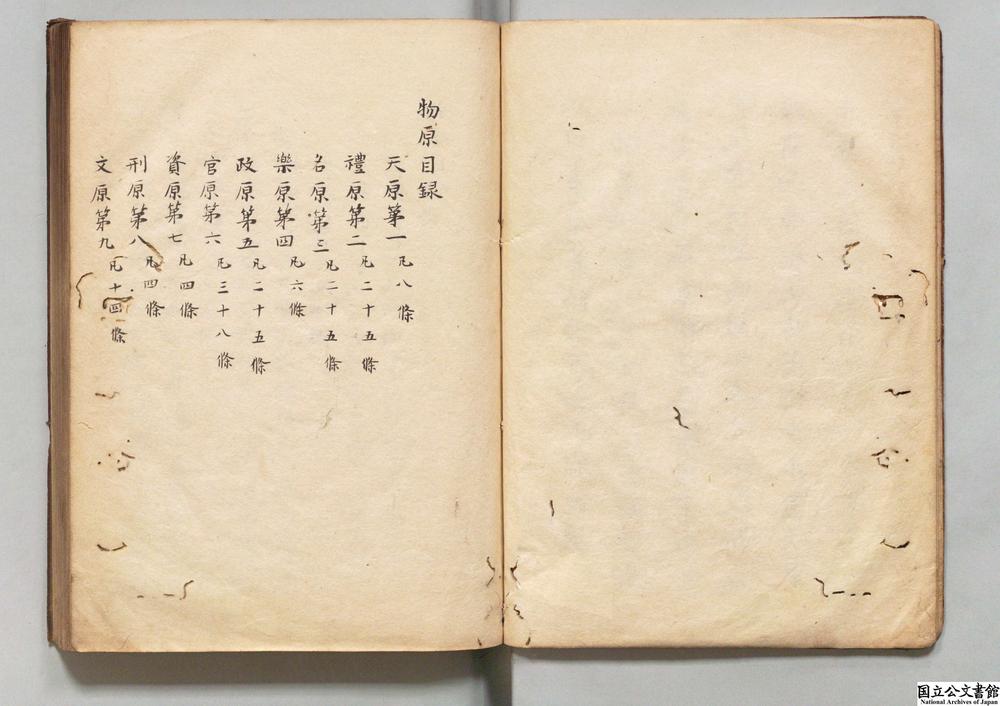 物原目録
天原第一 凡八條
禮原第二 凡二十五條
名原第三 凡二十五條
樂原第四 凡六條
政原第五 凡二十五條
官原第六 凡三十八條
資原第七 凡四條
刑原第八 凡四條
文原第九 凡十四條
国立公文書館
National Archives of Japan